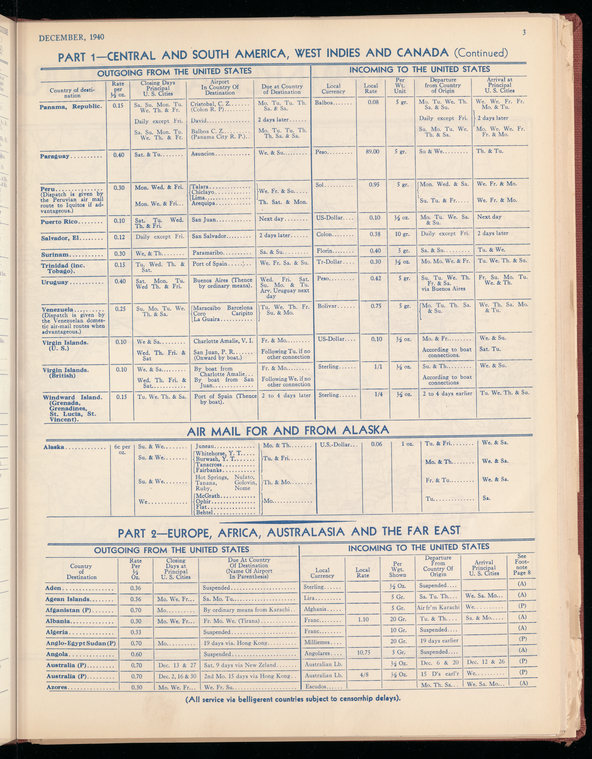 DECEMBER, 1940
3
PART 1—CENTRAL AND SOUTH AMERICA, WEST INDIES AND CANADA (Continued)
OUTGOING FROM THE UNITED STATES INCOMING TO THE UNITED STATES
Country of desti-nation Rate per ½ oz. Closing Days Principal U. S. Cities Airport In Country Of Destination Due at Country of Destination Local Currency Local Rate Per Wt. Unit Departure from Country of Origin Arrival at Principal U. S. Cities
Panama, Republic. 0.15 Sa. Su. Mon. Tu. We. Th. & Fr. Cristobal, C. Z. (Colon R. P.) Mo. Tu. Tu. Th. Sa. & Sa. Balboa 0.08 5 gr. Mo. Tu. We. Th. Sa. & Su. We. We. Fr. Fr. Mo. & Tu.
Daily except Fri. David 2 days later Daily except Fri. 2 days later
Sa. Su. Mo. Tu. We. Th. & Fr. Balboa C. Z. (Panama City R. P.) Mo. Tu. Tu. Th. Th. Sa. & Sa. Su. Mo. Tu. We. Th. & Sa. Mo. We. We. Fr. Fr. & Mo.
Paraguay 0.40 Sat. & Tu. Asuncion We. & Su. Peso 89.00 5 gr. Su & We. Th. & Tu.
Peru (Dispatch is given by the Peruvian air mail route to Iquitos if ad-vantageous.) 0.30 Mon. Wed. & Fri. Talara Chiclayo Lima We. Fr. & Su. Sol 0.95 5 gr. Mon. Wed. & Sa. We. Fr. & Mo.
Mon. We. & Fri. Arequipa Th. Sat. & Mon. Su. Tu. & Fr. We. Fr. & Mo.
Puerto Rico 0.10 Sat. Tu. Wed. Th. & Fri. San Juan Next day US-Dollar 0.10 ½ oz. Mo. Tu. We. Sa. & Su. Next day
Salvador, El 0.12 Daily except Fri. San Salvador 2 days later Colon 0.58 10 gr. Daily except Fri. 2 days later
Surinam 0.30 We. & Th. Paramaribo Sa. & Su. Florin 0.40 5 gr. Sa. & Su. Tu. & We.
Trinidad (inc. Tobago). 0.15 Tu. Wed. Th. & Sat. Port of Spain We. Fr. Sa. & Su. Tr-Dollar 0.30 ½ oz. Mo. Mo. We. & Fr. Tu. We. Th. & Sa.
Uruguay 0.40 Sat. Mon. Tu. Wed Th. & Fri. Buenos Aires (Thence by ordinary means). Wed. Fri. Sat. Su. Mo. & Tu. Arv. Uruguay next day Peso 0.42 5 gr. Su. Tu. We. Th. Fr. & Sa. via Buenos Aires Fr. Su. Mo. Tu. We. & Th.
Venezuela (Dispatch is given by the Venezuelan domes-tic air-mail routes when advantageous.) 0.25 Su. Mo. Tu. We. Th. & Sa. Maracaibo Barcelona Coro Caripito La Guaira Tu. We. Th. Fr. Su. & Mo. Bolivar 0.75 5 gr. Mo. Tu. Th. Sa. & Su. We. Th. Sa. Mo. & Tu.
Virgin Islands. (U. S.) 0.10 We & Su. Charlotte Amalie, V. I. Fr. & Mo. US-Dollar 0.10 ½ oz. Mo. & Fr. We. & Su.
Wed. Th. Fri. & Sat San Juan, P. R. (Onward by boat.) Following Tu. if no other connection According to boat connections. Sat. Tu.
Virgin Islands. (British) 0.10 We. & Sa. By boat from Charlotte Amalie Fr. & Mo. Sterling 1/1 ½ oz. Su. & Th. We. & Su.
Wed. Th. Fri. & Sat By boat from San Juan Following We. if no other connection According to boat connections
Windward Island. (Grenada, Grenadines, St. Lucia, St. Vincent). 0.15 Tu. We. Th. & Sa. Port of Spain (Thence by boat). 2 to 4 days later Sterling 1/4 ½ oz. 2 to 4 days earlier Tu. We. Th. & Su.
AIR MAIL FOR AND FROM ALASKA
Alaska 6c per oz. Su. & We. Juneau Mo. & Th. U.S.-Dollar 0.06 1 oz. Tu. & Fri. We. & Sa.
Su. & We. Whitehorse, Y. T. Burwash, Y. T. Tanacross Fairbanks Tu. & Fri. Mo. & Th. We. & Sa.
Su. & We. Hot Springs, Nulato, Tanana, Golovin, Ruby, Nome Th. & Mo. Fr. & Tu. We. & Sa.
We. McGrath Ophir Flat Bethel Mo. Tu. Sa.
PART 2—EUROPE, AFRICA, AUSTRALASIA AND THE FAR EAST
OUTGOING FROM THE UNITED STATES INCOMING TO THE UNITED STATES
Country of Destination Rate Per ½ Oz. Closing Days at Principal U. S. Cities Due At Country Of Destination (Name Of Airport In Parenthesis) Local Currency Local Rate Per Wgt. Shown Departure From Country Of Origin Arrival Principal U. S. Cities See Foot-note Page 8
Aden 0.56 Suspended Sterling ½ Oz. Suspended (A)
Agean Islands 0.36 Mo. We. Fr. Sa. Mo. Tu. Lira 5 Gr. Sa. Tu. Th. We. Sa. Mo. (A)
Afganistan (P) 0.70 Mo. By ordinary means from Karachi Afghanis 5 Gr. Air fr'm Karachi We. (P)
Albania 0.30 Mo. We. Fr. Fr. Mo. We. (Tirana) Franc 1.10 20 Gr. Tu. & Th. Sa. & Mo. (A)
Algeria 0.33 Suspended Franc 10 Gr. Suspended (A)
Anglo-Egypt Sudan (P) 0.70 Mo. 19 days via. Hong Kong Milliemes 20 Gr. 19 days earlier (P)
Angola 0.60 Suspended Angolares 10.75 5 Gr. Suspended (A)
Australia (P) 0.70 Dec. 13 & 27 Sat. 9 days via New Zeland Australian Lb. ½ Oz. Dec. 6 & 20 Dec. 12 & 26 (P)
Australia (P) 0.70 Dec. 2, 16 & 30 2nd Mo. 15 days via Hong Kong Australian Lb. 4/8 ½ Oz. 15 D's earl'r We. (P)
Azores 0.30 Mo. We. Fr. We. Fr. Su. Escudos Mo. Th. Sa. We. Sa. Mo. (A)
(All service via belligerent countries subject to censorship delays).